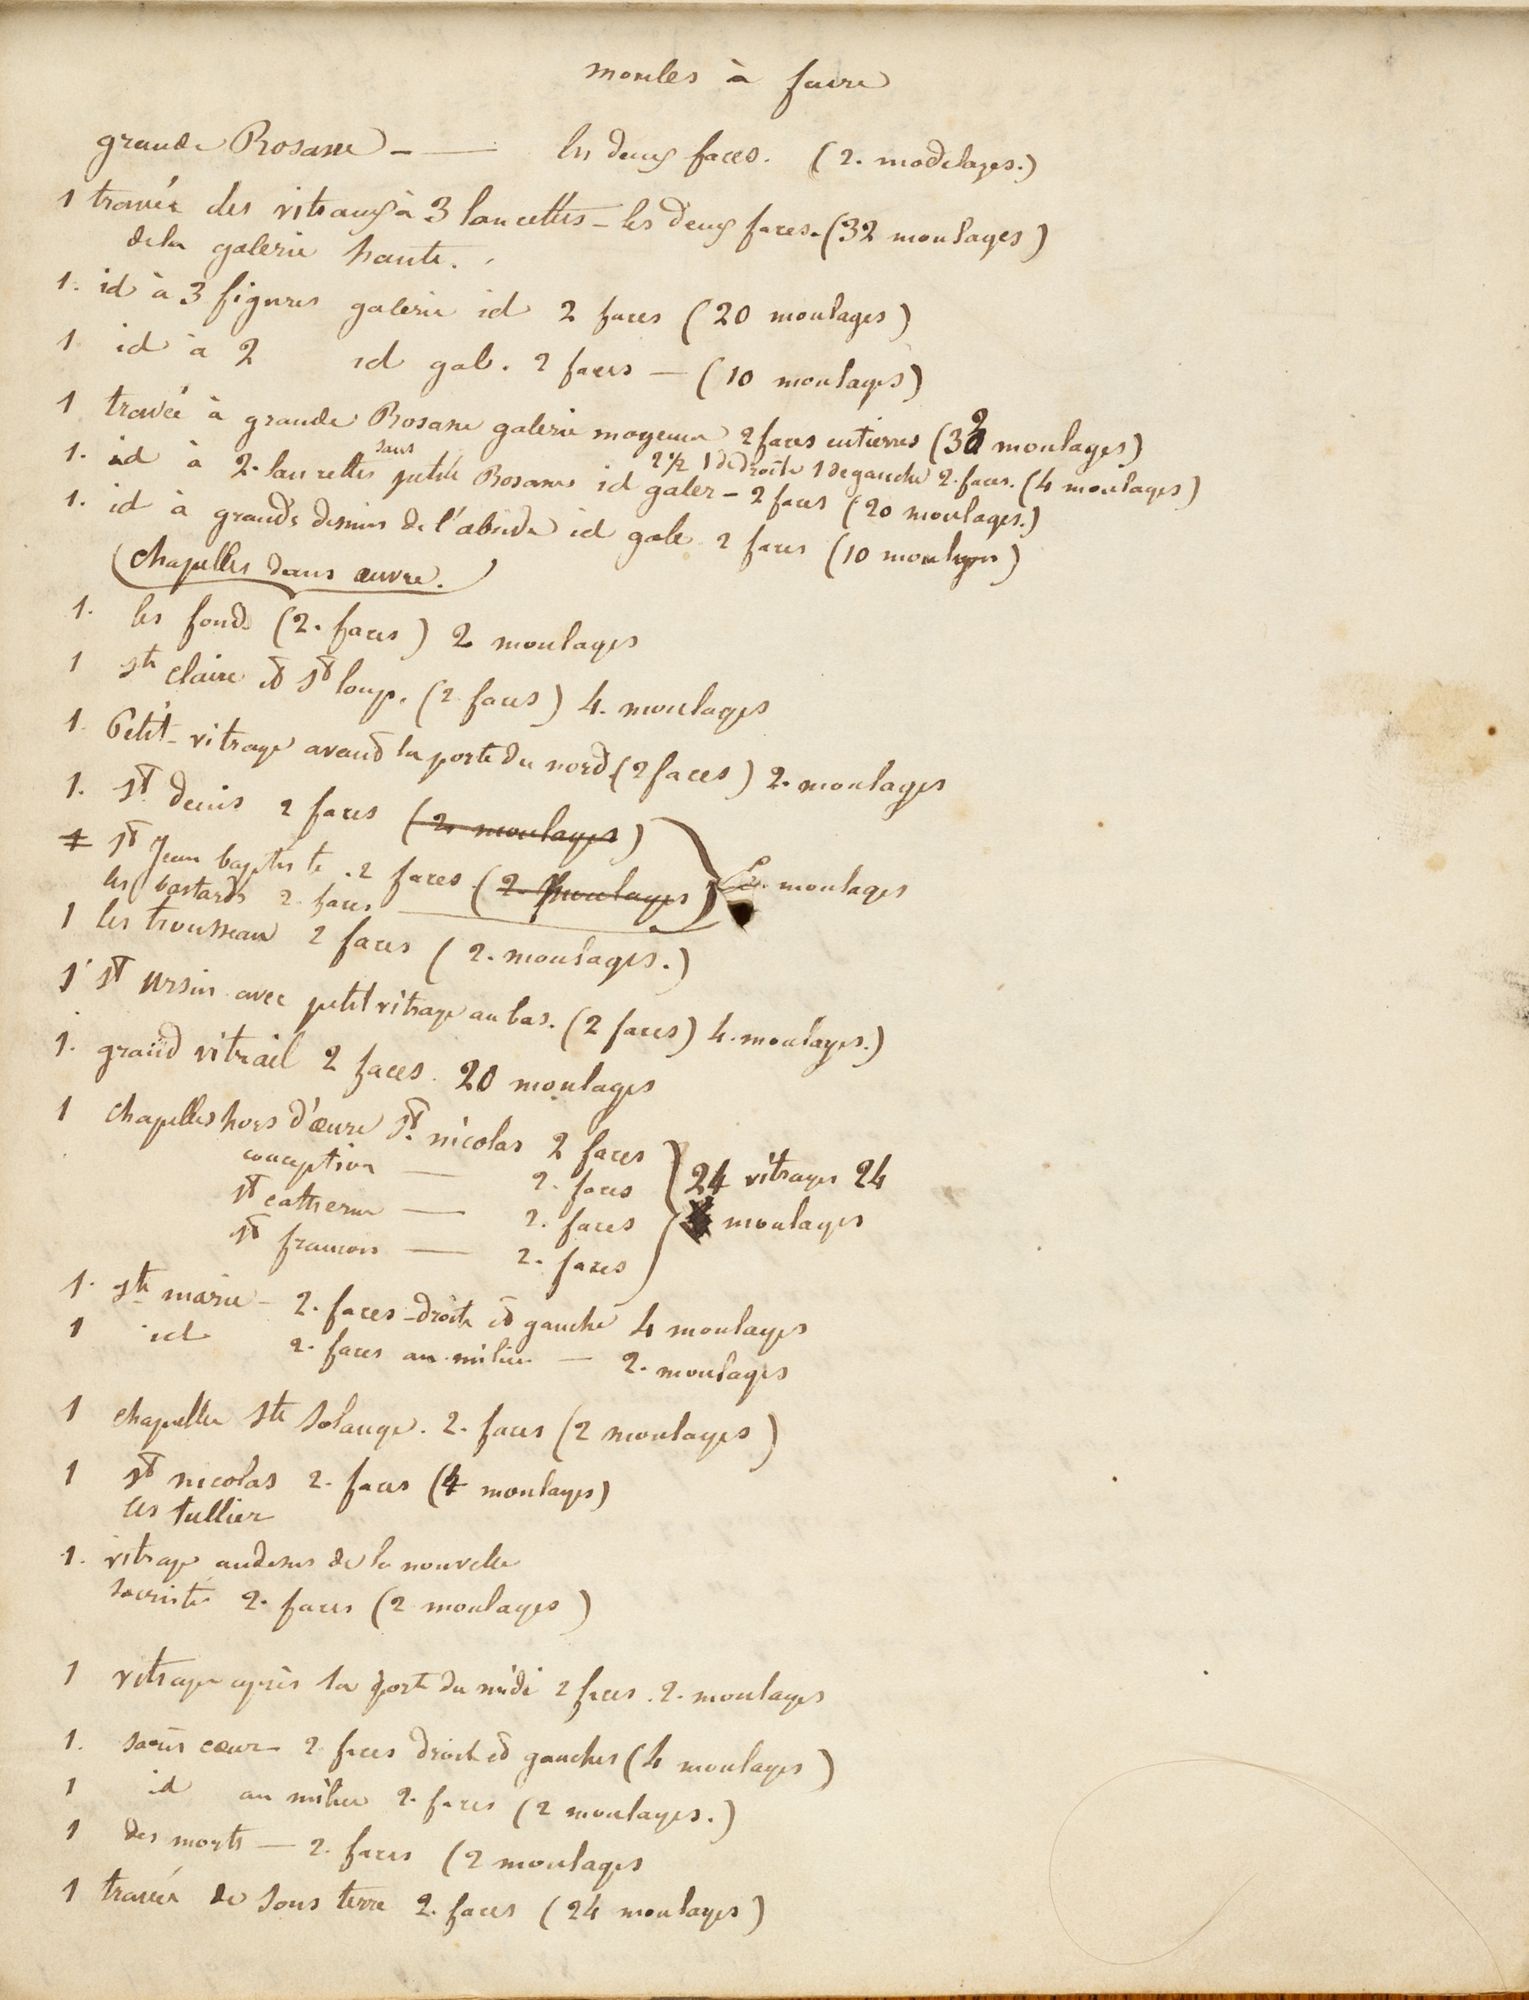 moules à faire
grande Rosasse - — les deux faces. (2. modelages.)
1 travée des vitraux à 3 lancettes - les deux faces. (32 moulages)
de la galerie haute.
1. id à 3 figures galerie id 2 faces (20 moulages)
1 id à 2 id gal. 2 faces — (10 moulages)
1 travée à grande Rosasse galerie moyenne 2 faces entierres (32 moulages)
2 1/2 1 de droite 1 de gauche 2. faces. (4 moulages)
1. id à 2. lancettes sans petite Rosasses id galer - 2 faces (20 moulages.)
1. id à grands dessins de l'abside id gale 2 faces (10 moulages)
(chapelles dans œuvre.)
1. les fonds (2. faces) 2 moulages
1 ste claire et st loup. (2 faces) 4. moulages
1. Petit-vitrage avant la porte du nord (2 faces) 2. moulages
1. st denis 2 faces (2. moulages)
1 st Jean baptiste. 2 faces. (2. moulages) moulages
les bastards 2. faces
1 les trousseau 2 faces (2. moulages.)
1 st ursin avec petit vitrage au bas. (2 faces) 4. moulages.)
1. grand vitrail 2 faces. 20 moulages
1 chapelles hors d'œuvre st. nicolas 2 faces
conception — 2. faces 24 vitrages 24
st catherine — 2. faces moulages
st francois — 2. faces
1. ste marie - 2. faces - droite et gauche 4 moulages
1 id 2. faces au milieu — 2. moulages
1 chapelle ste solange. 2. faces (2 moulages)
1 st nicolas 2. faces (4 moulages)
les tullier
1. vitrage audessus de la nouvelle
sacristie 2. faces (2 moulages)
1 vitrage après la porte du midi 2 faces. 2. moulages
1. sacré cœur 2 faces droite et gauches (4 moulages)
1 id au milieu 2. faces (2 moulages.)
1 des morts — 2. faces (2 moulages
1 travée de sous terre 2. faces (24 moulages)